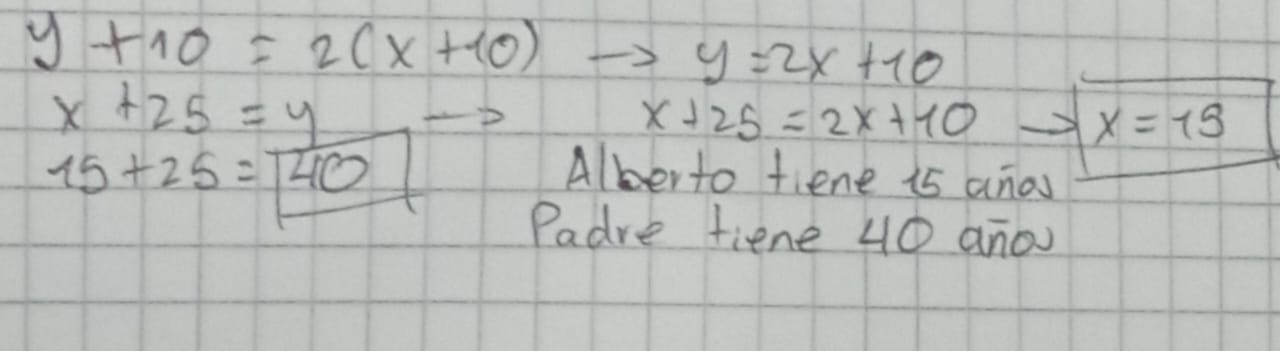 y + 10 = 2(x+10) → y = 2x + 10
x + 25 = y → x + 25 = 2x + 10 → x = 15
15 + 25 = 40 Alberto tiene 15 años
Padre tiene 40 años